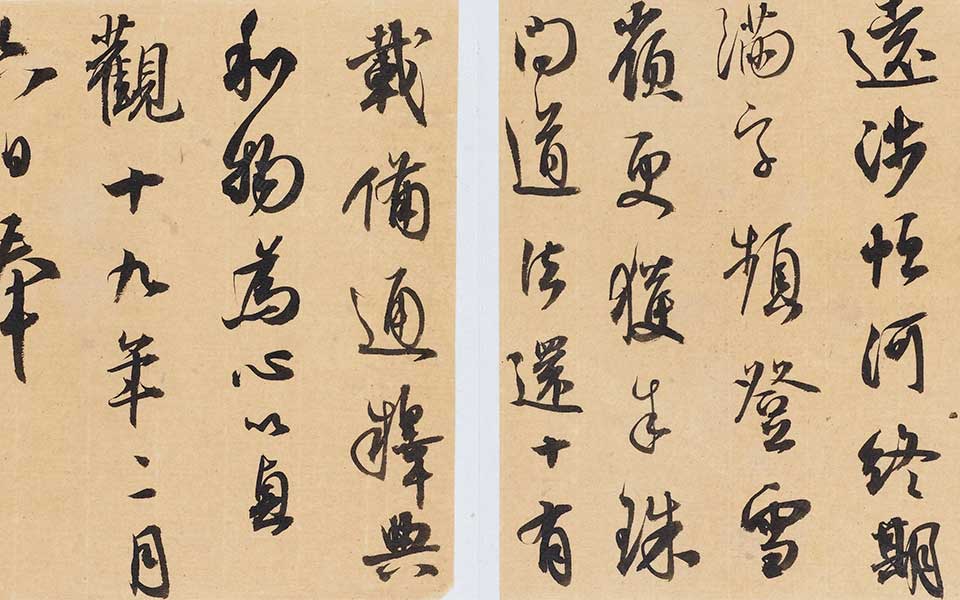 遠涉恒河終期
滿字頻登雪
嶺更獲半珠
問道法還十有
載備通釋典
利物為心以貞
觀十九年二月
六日奉